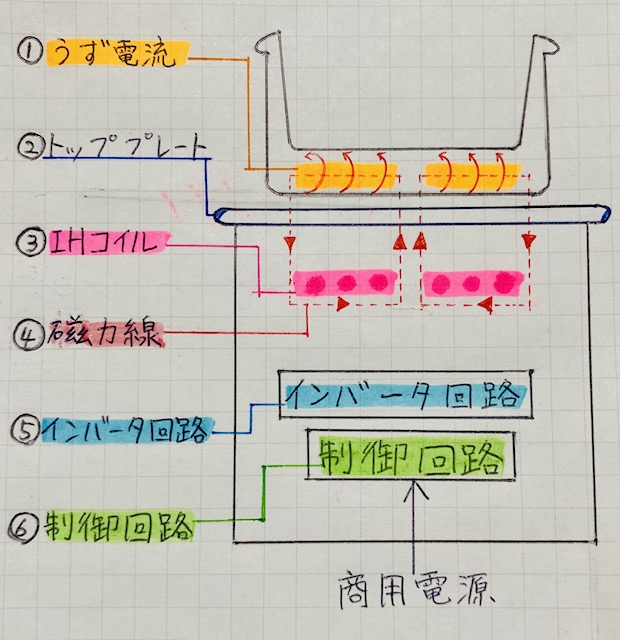 ① うず電流
② トッププレート
③ IHコイル
④ 磁力線
⑤ インバータ回路
⑥ 制御回路
インバータ回路
制御回路
商用電源